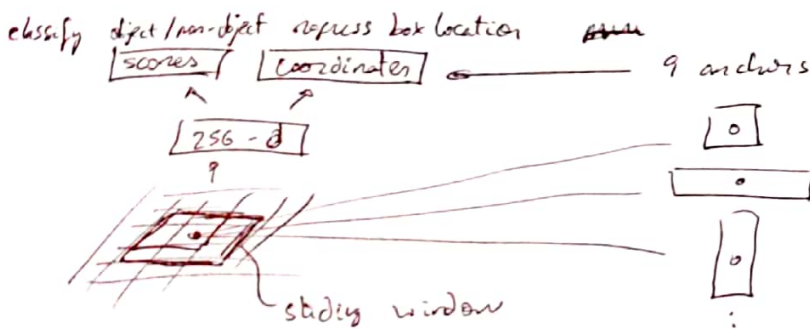 classify object/non-object regress box location
scores coordinates 9 anchors
256-d
sliding window